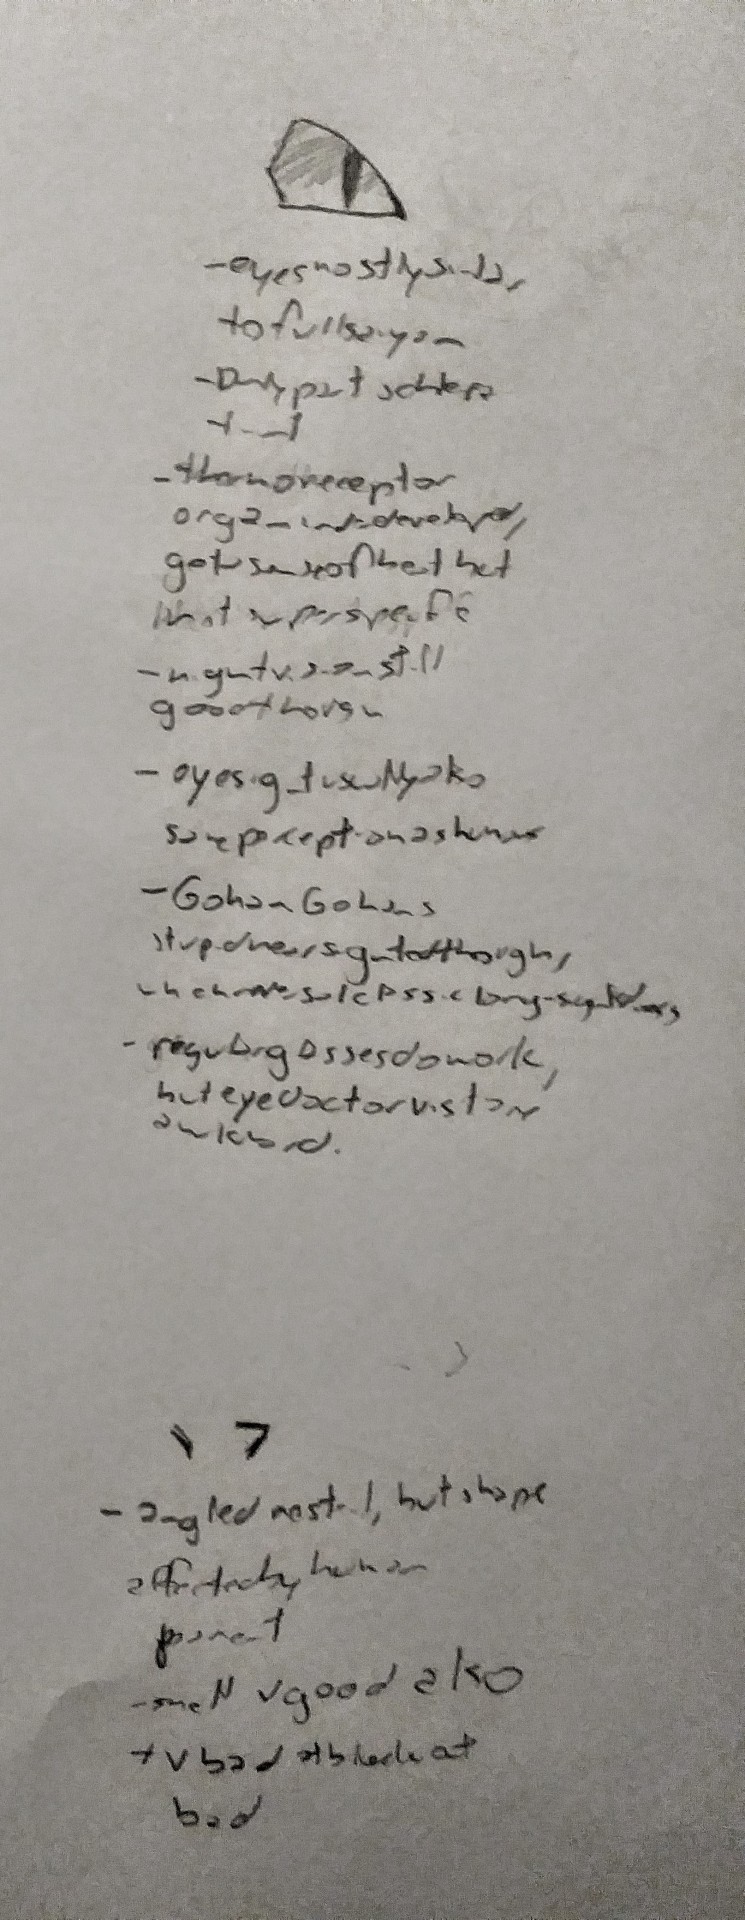 - eyes mostly similar
to full saiyan
- Only part sclera
- thermoreceptor
organ underdeveloped,
gets sense of heat but
isnt super specific
- nightvision still
good though
- eyesight usually also
same perception as humans
- Gohan Gohans
stupid nearsighted though,
classic long-sightedness
- regular glasses do work,
but eye doctor visits are
awkward.
- angled nostril, but shape
affected by human
parent
- smell v good also
+ v bad at block out
bad